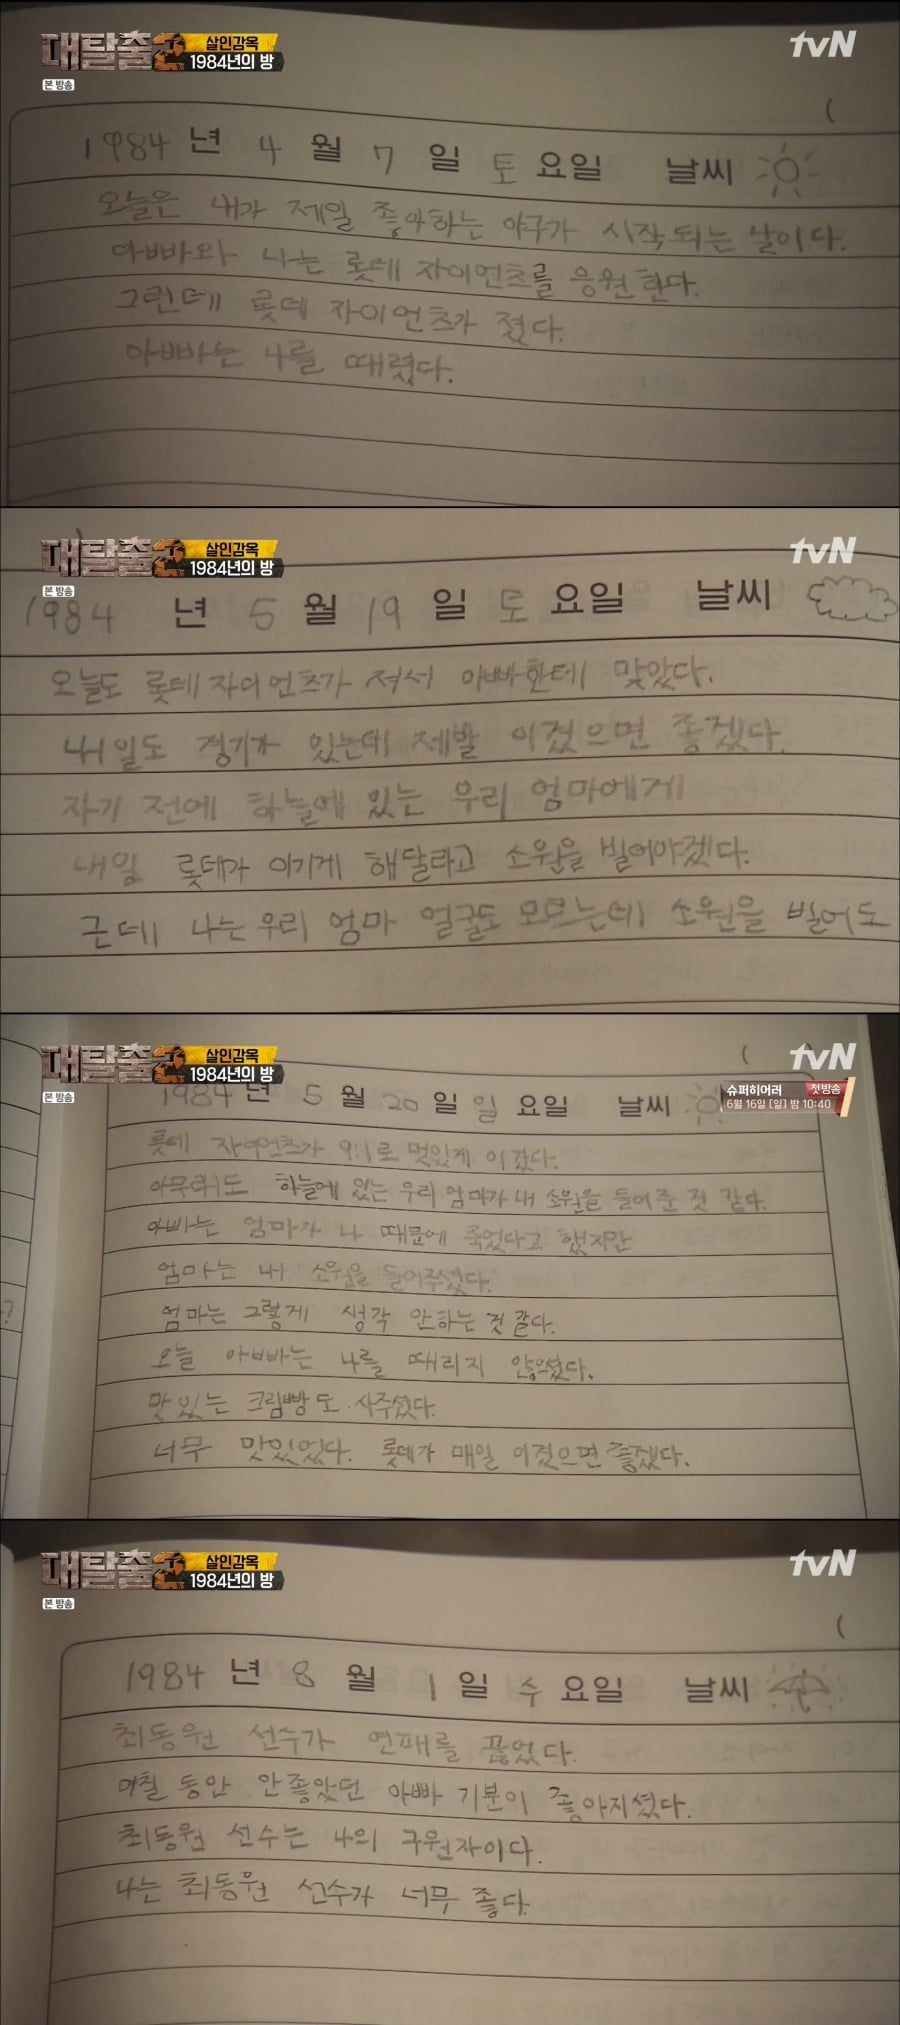 대탈출2
살인감옥
1984년의 방
본 방송
tvN
1984 년 4 월 7 일 토 요일 날씨
오늘은 내가 제일 좋아하는 야구가 시작되는 날이다.
아빠와 나는 롯데 자이언츠를 응원한다.
그런데 롯데 자이언츠가 졌다.
아빠는 나를 때렸다.
대탈출2
살인감옥
1984년의 방
본 방송
tvN
1984 년 5 월 19 일 토 요일 날씨
오늘도 롯데 자이언츠가 져서 아빠한테 맞았다.
내일도 경기가 있는데 제발 이겼으면 좋겠다.
자기 전에 하늘에 있는 우리 엄마에게
내일 롯데가 이기게 해달라고 소원을 빌어야겠다.
근데 나는 우리 엄마 얼굴도 모르는데 소원을 빌어도
대탈출2
살인감옥
1984년의 방
본 방송
tvN
슈퍼히어러 첫방송
6월 16일 [일] 밤 10:40
1984 년 5 월 20 일 일 요일 날씨
롯데 자이언츠가 9:1로 멋있게 이겼다.
아무래도 하늘에 있는 우리 엄마가 내 소원을 들어준 것 같다.
아빠는 엄마가 나 때문에 죽었다고 했지만
엄마는 내 소원을 들어주셨다.
엄마는 그렇게 생각 안하는 것 같다.
오늘 아빠는 나를 때리지 않으셨다.
맛있는 크림빵도 사주셨다.
너무 맛있었다. 롯데가 매일 이겼으면 좋겠다.
?
대탈출2
살인감옥
1984년의 방
본 방송
tvN
1984 년 8 월 1 일 수 요일 날씨
최동원 선수가 연패를 끊었다.
며칠 동안 안좋았던 아빠 기분이 좋아지셨다.
최동원 선수는 나의 구원자이다.
나는 최동원 선수가 너무 좋다.